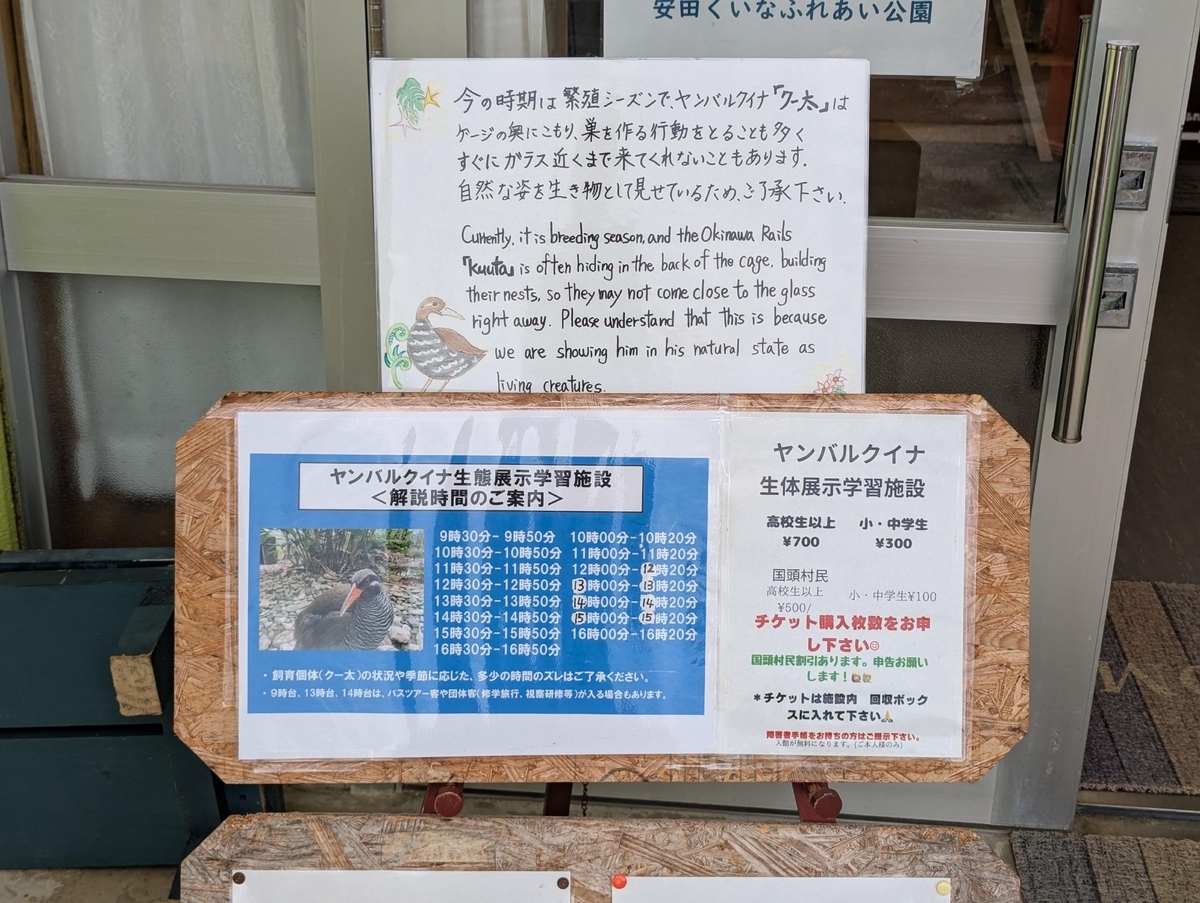 安田くいなふれあい公園
今の時期は繁殖シーズンで、ヤンバルクイナ『クー太』は
ケージの奥にこもり、巣を作る行動をとることも多く
すぐにガラス近くまで来てくれないこともあります。
自然な姿を生き物として見せているため、ご了承下さい。
Currently, it is breeding season, and the Okinawa Rails
『kuuta』 is often hiding in the back of the cage, building
their nests, so they may not come close to the glass
right away. Please understand that this is because
we are showing him in his natural state as
living creatures.
ヤンバルクイナ生態展示学習施設
＜解説時間のご案内＞
9時30分-9時50分 10時00分-10時20分
10時30分-10時50分 11時00分-11時20分
11時30分-11時50分 12時00分-12時20分
12時30分-12時50分 13時00分-13時20分
13時30分-13時50分 14時00分-14時20分
14時30分-14時50分 15時00分-15時20分
15時30分-15時50分 16時00分-16時20分
16時30分-16時50分
・飼育個体(クー太)の状況や季節に応じた、多少の時間のズレはご了承ください。
・9時台、13時台、14時台は、バスツアー客や団体客(修学旅行、視察研修等)が入る場合もあります。
ヤンバルクイナ
生体展示学習施設
高校生以上 小・中学生
¥700 ¥300
国頭村民
高校生以上 小・中学生¥100
¥500/
チケット購入枚数をお申
し下さい☺
国頭村民割引あります。申告お願い
します！
＊チケットは施設内 回収ボック
スに入れて下さい🙏
障害者手帳をお持ちの方はご提示下さい。
入館が無料になります。(ご本人様のみ)